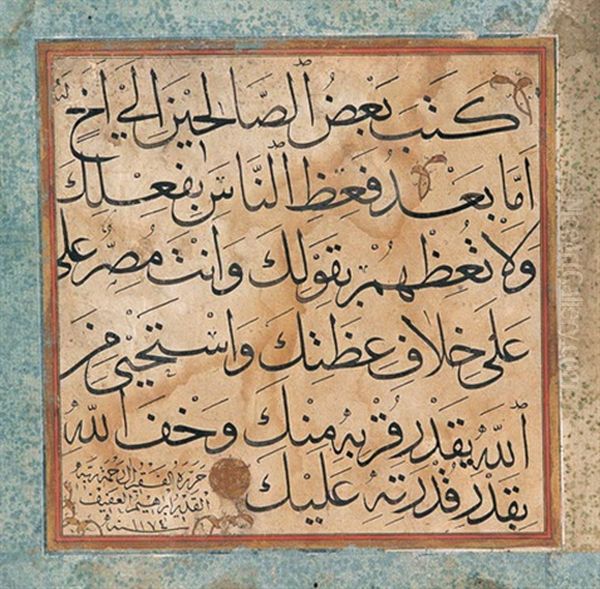 كتب بعض الصالحين الي اخ له
اما بعد فعظ الناس بفعلك
ولا تعظهم بقولك وانت مصر على
على خلاف عظتك واستحيي من
الله بقدر قربه منك وخف الله
بقدر قدرته عليك
حرره الفقير الى رحمة ربه
القدير ابراهيم العفيف
سنة ١١٧٤